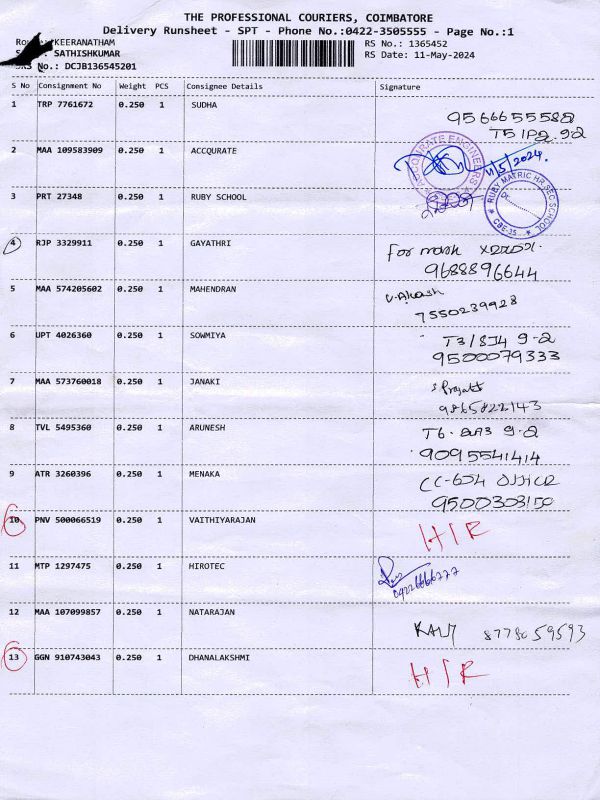 THE PROFESSIONAL COURIERS, COIMBATORE
Delivery Runsheet - SPT - Phone No.:0422-3505555 - Page No.:1
KEERANATHAM RS No.: 1365452
SATHISHKUMAR RS Date: 11-May-2024
No.: DCJB136545201
S No Consignment No Weight PCS Consignee Details Signature
1 TRP 7761672 0.250 1 SUDHA 9566655588
2 MAA 109583909 0.250 1 ACCQURATE 11/5/2024.
ACCQURATE ENGINEERS
3 PRT 27348 0.250 1 RUBY SCHOOL
RUBY MATRIC HR SEC SCHOOL
CBE-35
4 RJP 3329911 0.250 1 GAYATHRI For mark xerox.
9688896644
5 MAA 574205602 0.250 1 MAHENDRAN V. Akash
7550239928
6 UPT 4026360 0.250 1 SOWMIYA 9-2
9500079333
7 MAA 573760018 0.250 1 JANAKI
9865822143
8 TVL 5495360 0.250 1 ARUNESH T6- 9-2
9095541414
9 ATR 3260396 0.250 1 MENAKA CC-604 OFFICE
9500303150
10 PNV 500066519 0.250 1 VAITHIYARAJAN H/R
11 MTP 1297475 0.250 1 HIROTEC
04226666777
12 MAA 107099857 0.250 1 NATARAJAN 8778059593
13 GGN 910743043 0.250 1 DHANALAKSHMI H/R